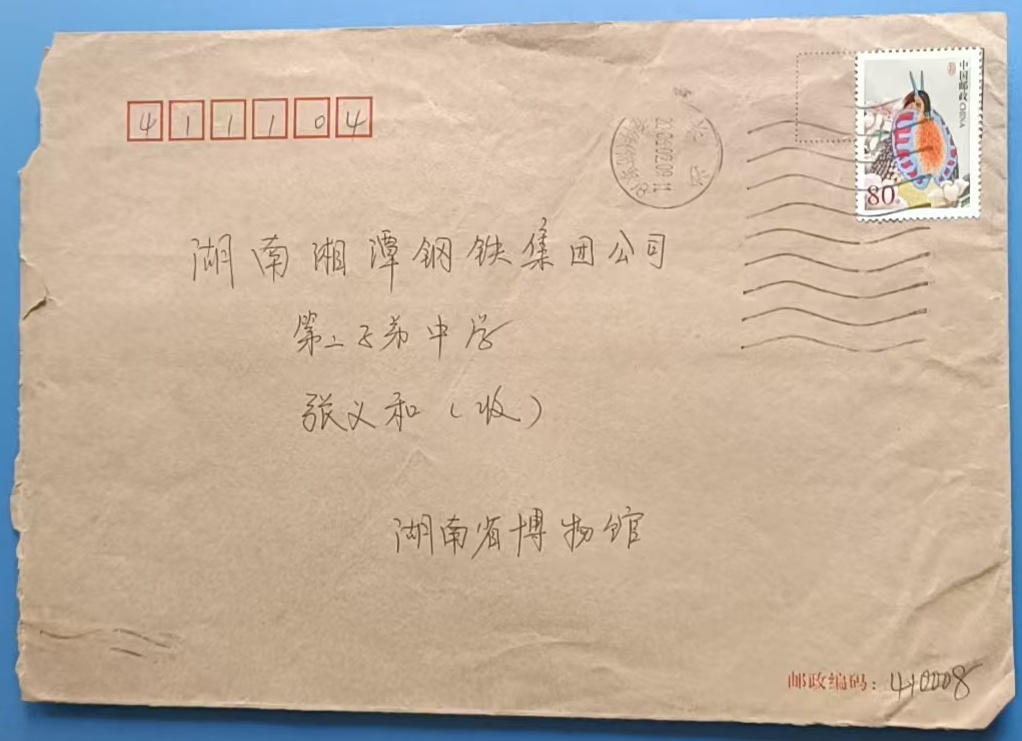 411104
中国邮政 CHINA
80分
湖南湘潭钢铁集团公司
第二子弟中学
张义和（收）
湖南省博物馆
邮政编码：410008